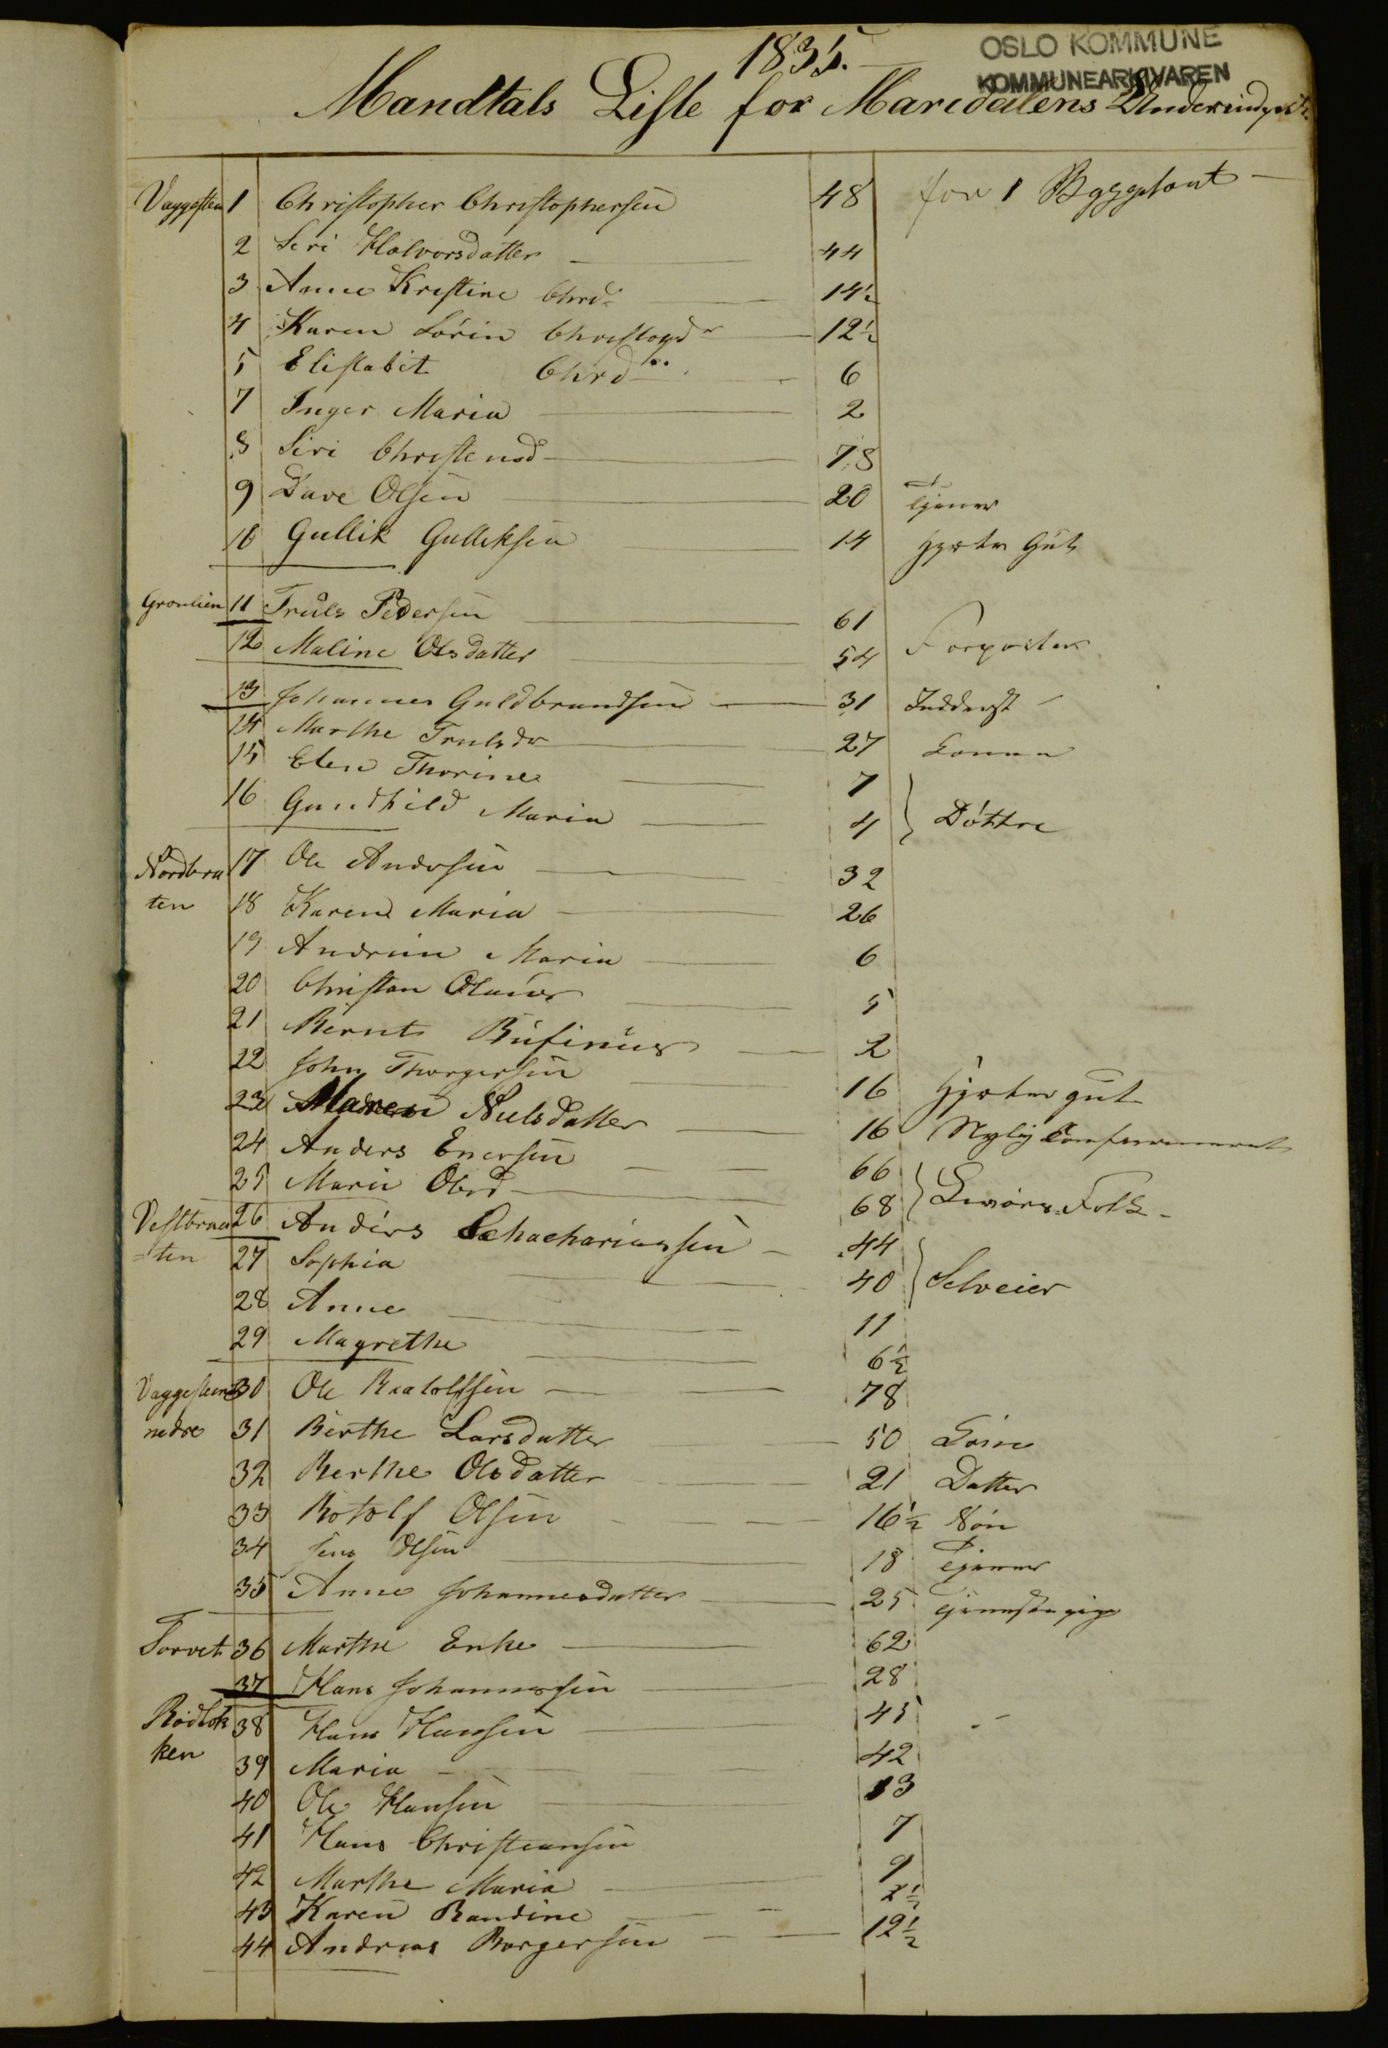 1835.
OSLO KOMMUNE
KOMMUNEARKIVAREN
Mandtals Liste for Maredalens
Vaggesten 1 Christopher Christophersen 48 for 1
2 Siri Halvorsdatter 44
3 Anne Kristine Chrd. 14½
4 Karen Sörin 12½
5 Elisabit Chrd 6
7 Inger Maria 2
8 Siri Christensd 78
9 Olsen 20 Tjener
10 Gullik Gulliksen 14 Gut
Gronlien 11 Truls Pedersen 61
12 Maline Olsdatter 54
13 Johannes Guldbrandsen 31 Inderst
14 Marthe Trulsdr 27 Konen
15 Elen Thorine 7
16 Gundhild Maria 4 } Döttre
Nordbra 17 Ole Andersen 32
ten 18 Karen Maria 26
19 Andrine Maria 6
20 Christian Olaus 5
21 Bernt Rufinus 2
22 John Thorgersen 16 Hjørter gut
23 Maren Nielsdatter 16 Nylig Confirmeret
24 Anders Enersen 66
25 Marie Olsd 68 } Folk
Vestbraa 26 Anders Schachariassen 44
=ten 27 Sophia 40 } Selveier
28 Anne 11
29 Magrethe 6½
Vaggesten 30 Ole Raatolfsen 78
nedre 31 Birthe Larsdatter 50 Kone
32 Berthe Olsdatter 21 Datter
33 Rotolf Olsen 16½ Sön
34 Jens Olsen 18 Tjener
35 Anne Johannesdatter 25 Tjenestepige
Torvet 36 Marthe Enke 62
37 Hans Johannesen 28
Rødlok 38 Hans Hansen 45
ken 39 Maria 42
40 Ole Hansen 13
41 Hans Christiansen 7
42 Marthe Maria 9
43 Karen Randine 2½
44 Andreas Borgersen 12½